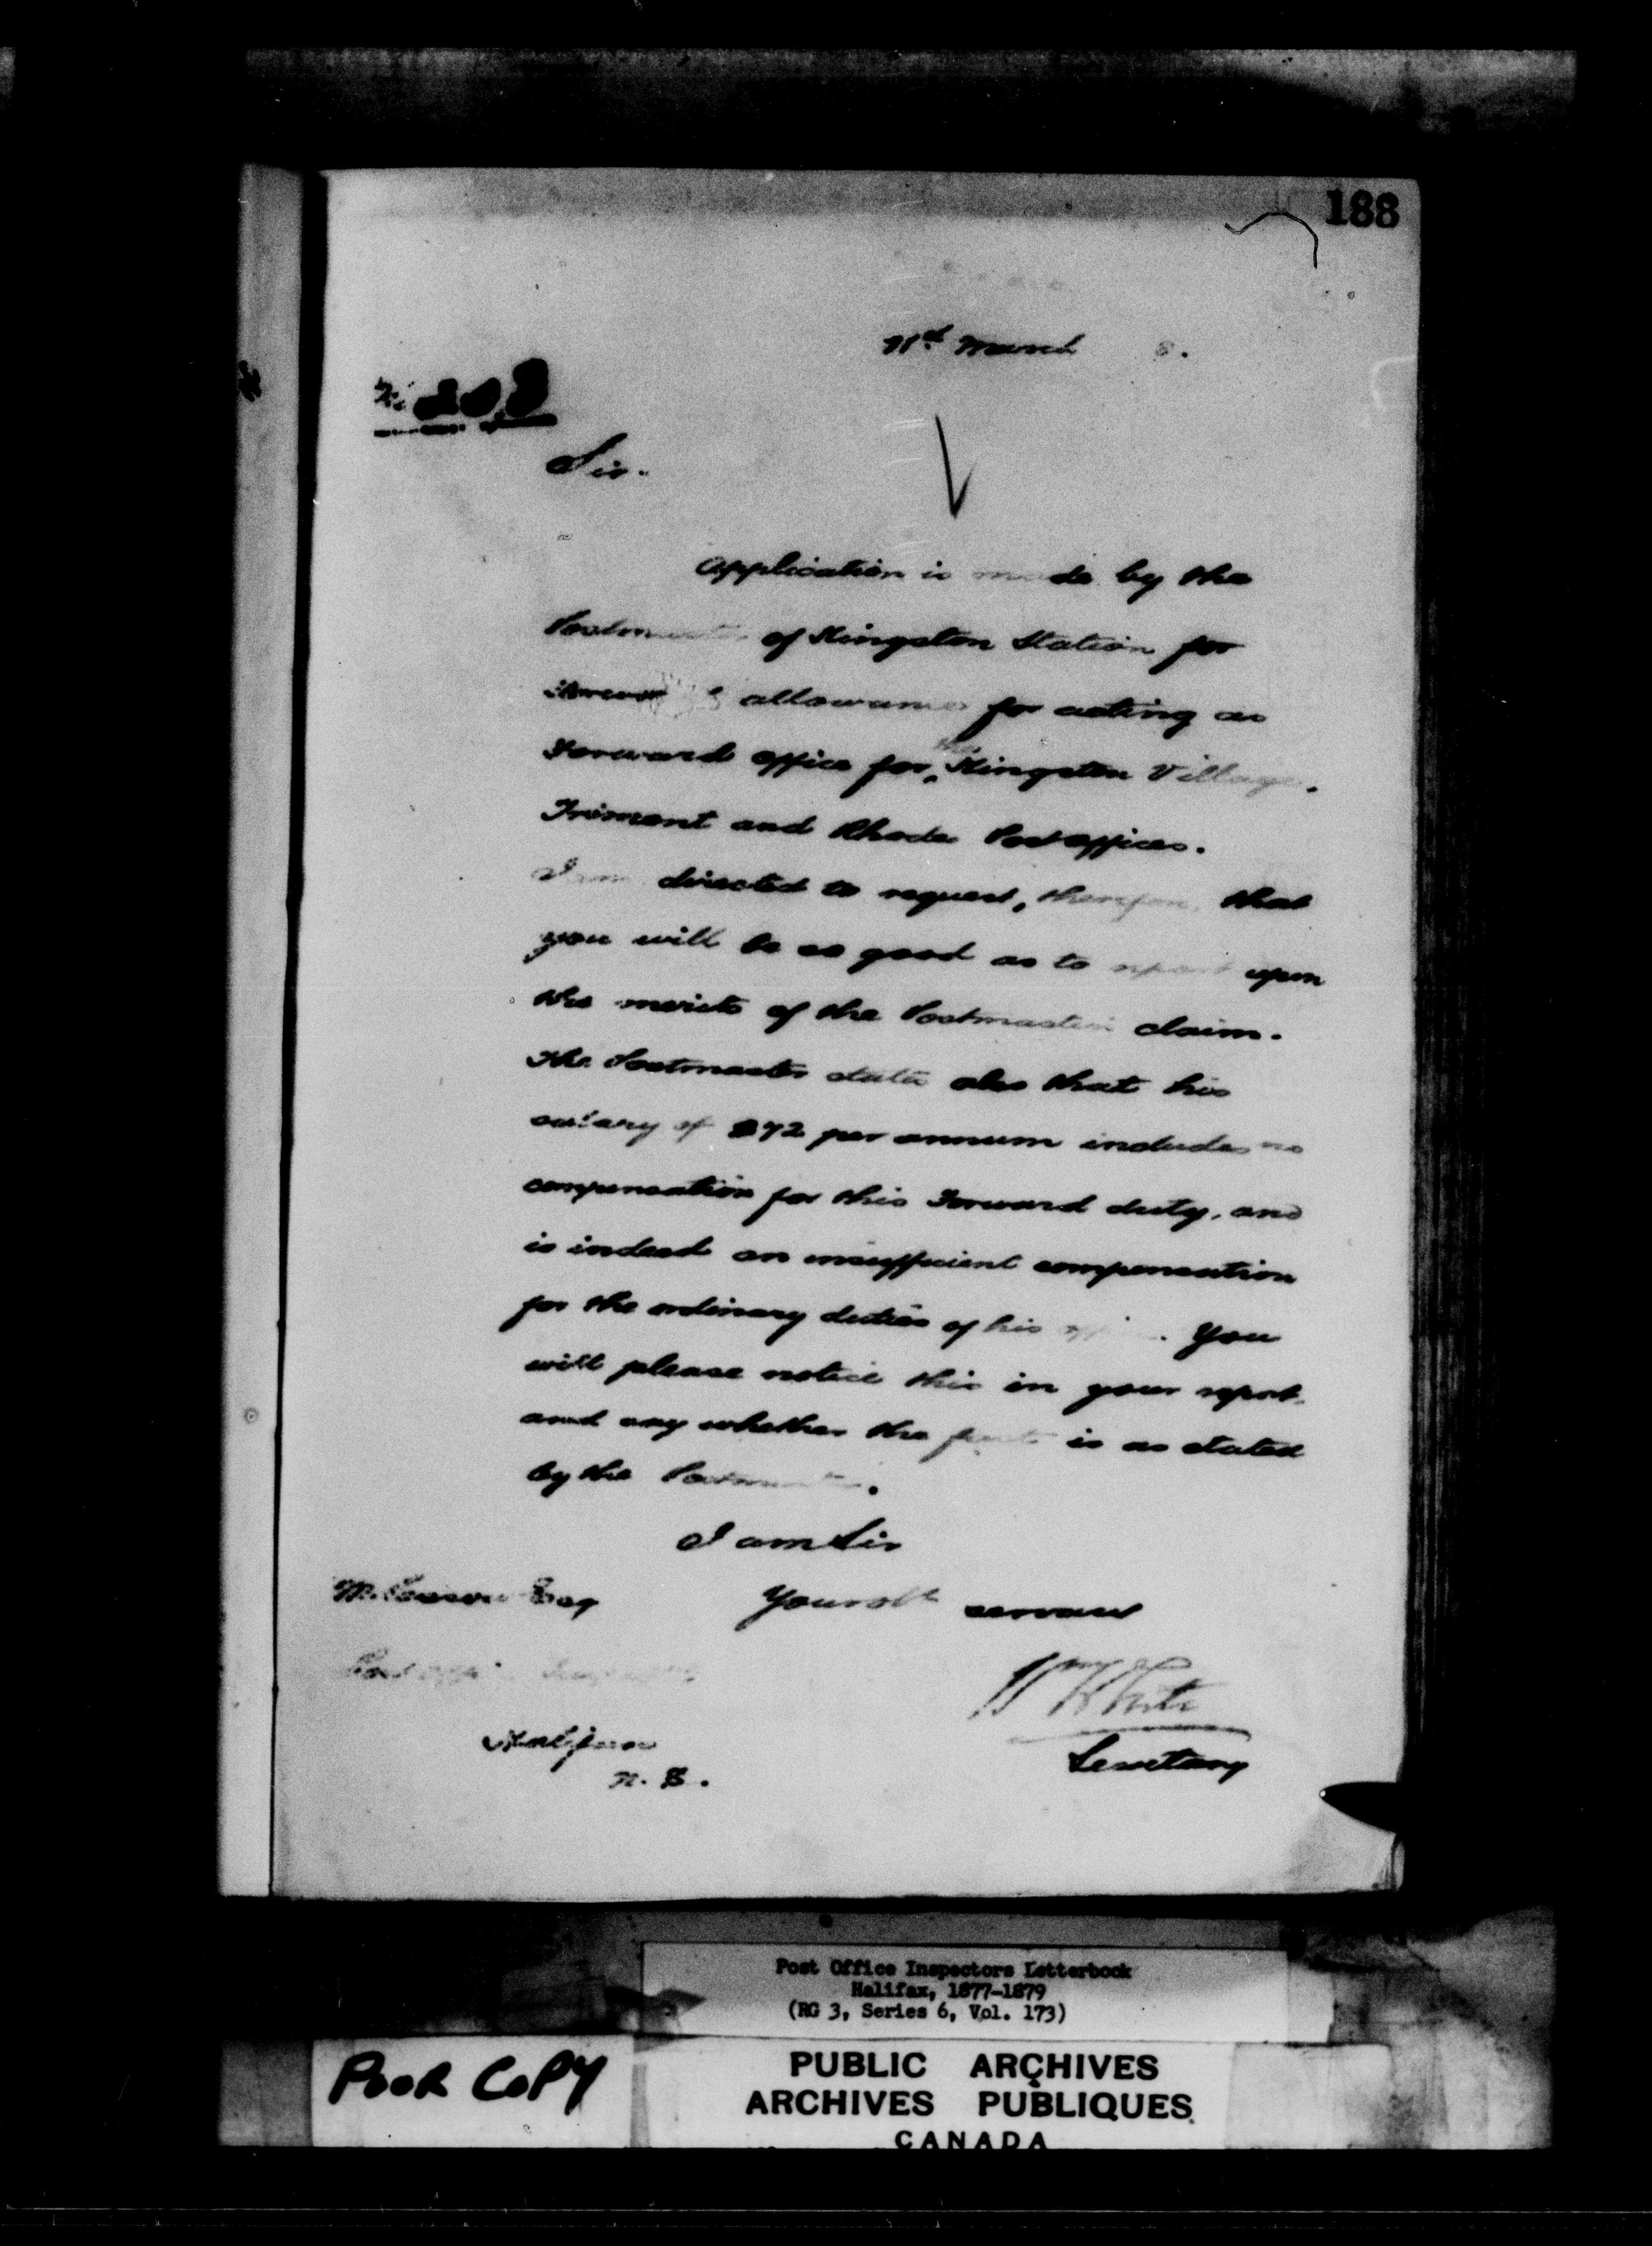 188
March
Sir.
Application is made by the
Postmaster of Kingston Station for
allowance for acting as
Forward Office for the Kingston Village.
Tremont and Rhodes Post Offices.
I am directed to request, therefore, that
you will be so good as to report upon
the merits of the Postmasters claim.
The Postmaster states also that his
salary of $72 per annum includes no
compensation for this Forward duty, and
is indeed an insufficient compensation
for the ordinary duties of his office. You
will please notice this in your report,
and say whether the fact is as stated
by the Postmaster.
I am Sir
Your obt servant
Esq
Post Office Inspector
Wm White
Halifax
Secretary
N. S.
Post Office Inspectors Letterbook
Halifax, 1877-1879
(RG 3, Series 6, Vol. 173)
POOR COPY
PUBLIC ARCHIVES
ARCHIVES PUBLIQUES
CANADA